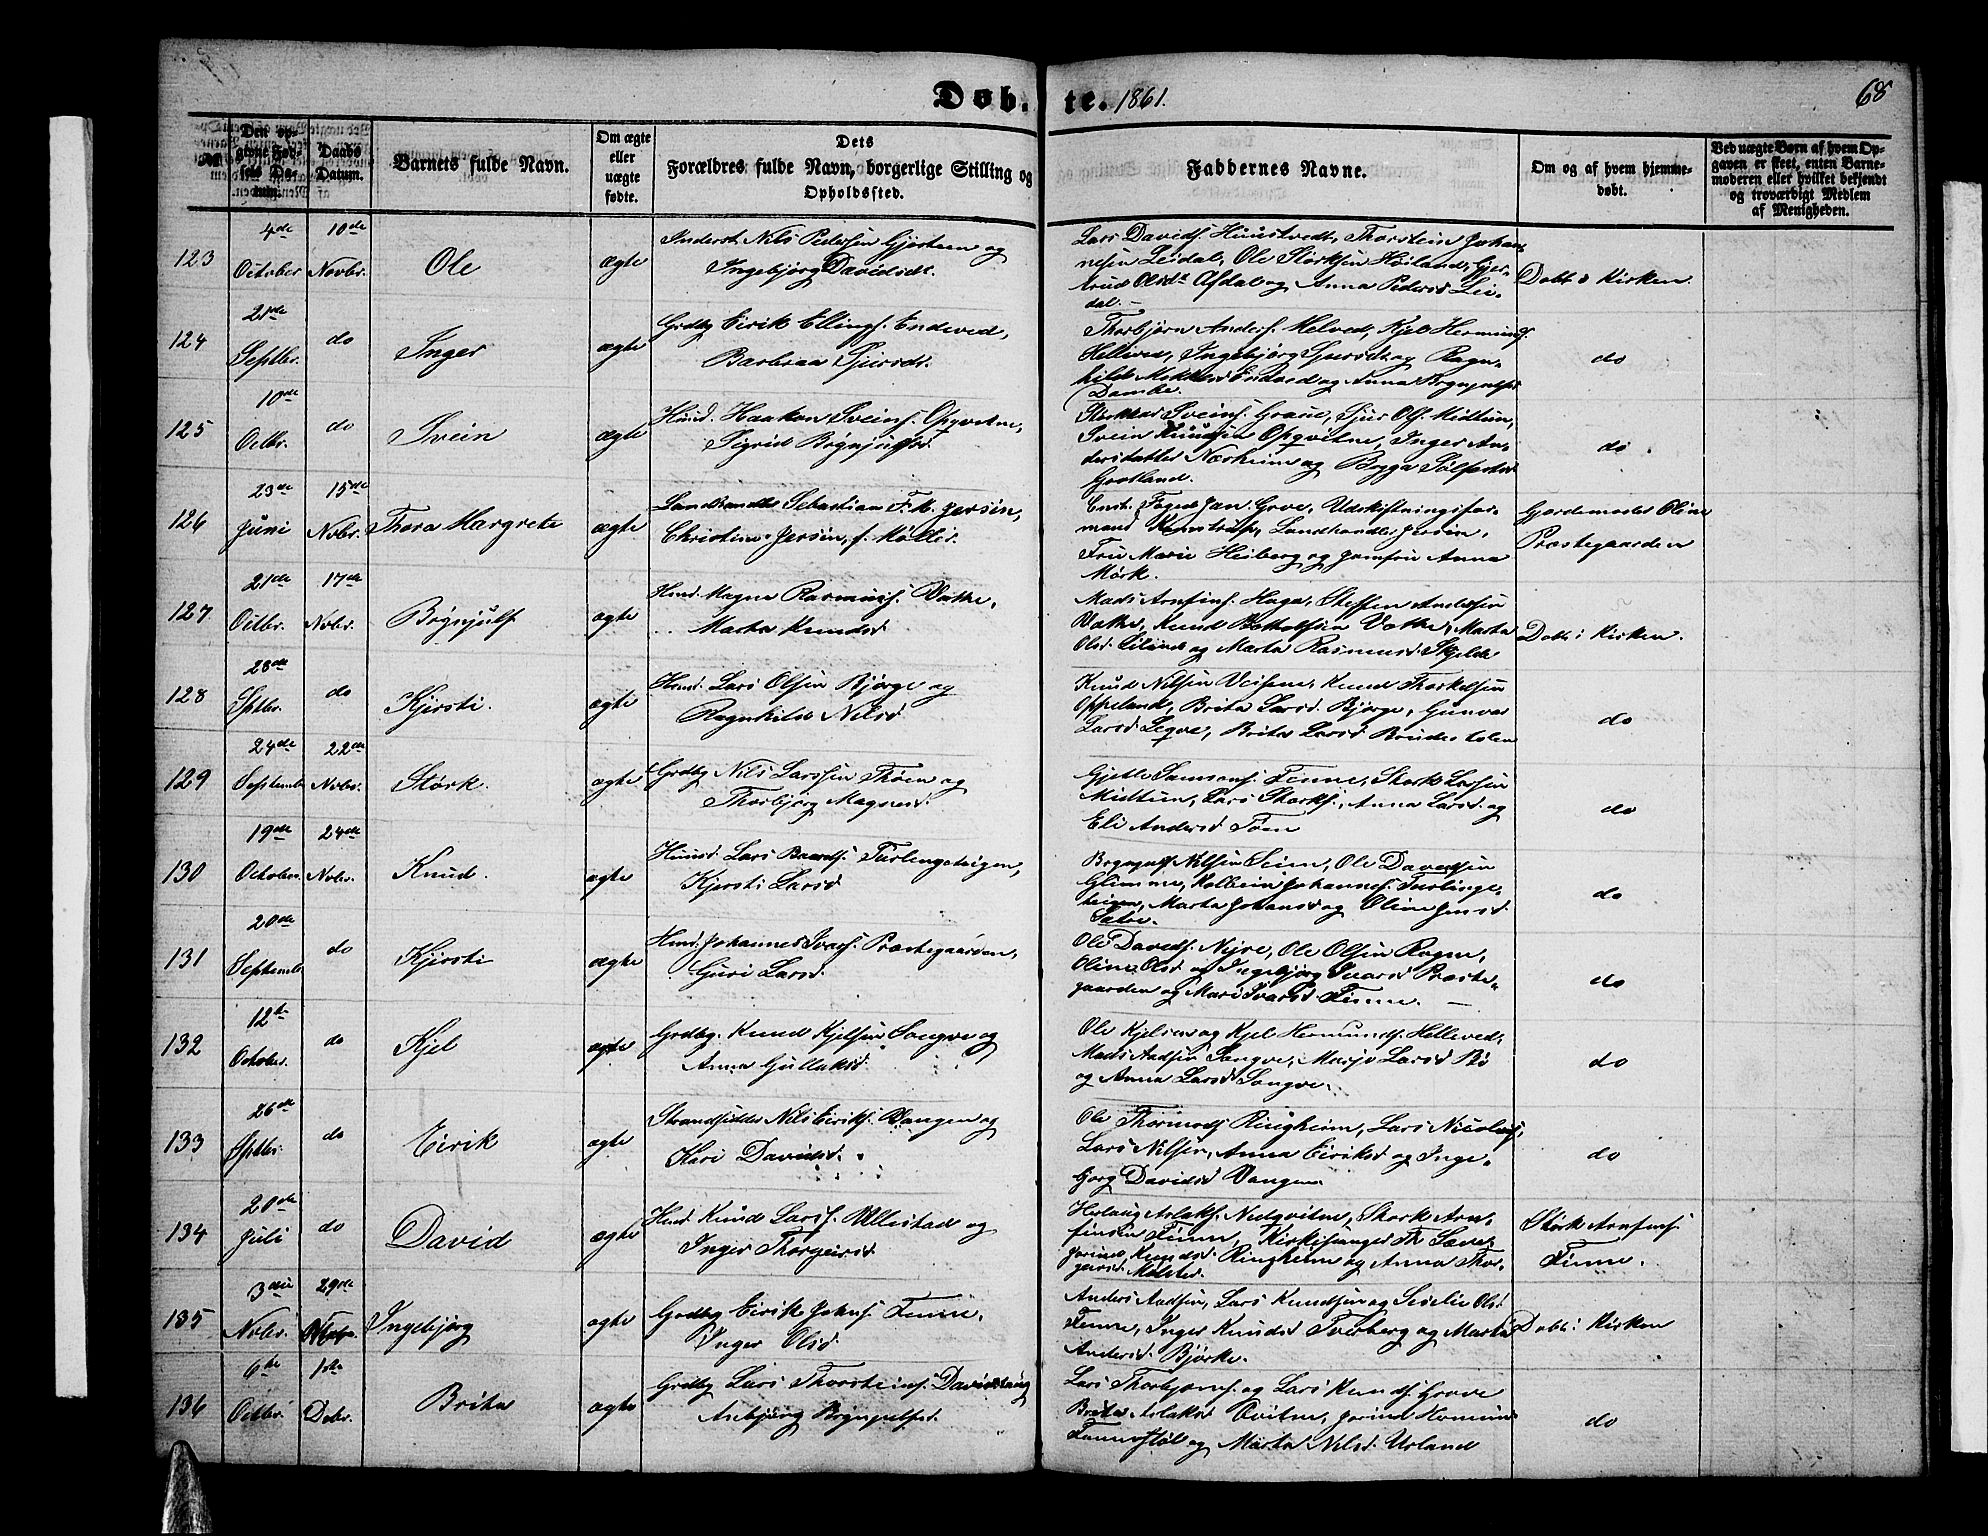 Døb-te. 1861.
68
№
Den opgivne Fødsels Datum.
Daabs Datum.
Barnets fulde Navn.
Om ægte eller uægte fødte.
Dets Forældres fulde Navn, borgerlige Stilling og Opholdssted.
Faddernes Navne.
Om og af hvem hjemmedøbt.
Ved uægte Børn af hvem Opgaven er skeet, enten Barnemoderen eller hvilket bekjendt og troværdigt Medlem af Menigheden.
123
4de October
10de Novbr.
Ole
ægte
Inderst Nils Pedersen Gjersteen og
Ingebjørg Davidsdt.
Lars Davids. Huustvedt, Thorstein Johan-
nesen Leidal, Ole Størksen Høiland, Gjer-
trud Olsdt Afdal og Anna Pedersd Lei-
dal. —
Døbt i Kirken.
124
21de Septbr.
do
Inger
ægte
Grdbg Eirik Ellings. Endeved,
Barbraa Sjursdt.
Thorbjørn Anders. Helved, Kjel Hermunds.
Helleved, Ingebjørg Sjursdt og Ragn-
hild Endved og Anna Brynjulfsd
Dambe.
do
125
10de Octbr.
do
Svein
ægte
Huusd. Haakon Sveins. Opqvitne,
Sigrid Brynjulfsd.
Sveins. Graue, Sjur Ols. Midtun,
Svein Knudsen Opqvitne, Inger An-
dersdatter Nærheim og Brygga Sølfestsd
Grotland.
do
126
23de Juni
15de Novbr.
Thora Margrete
ægte
Landhandler Sebastian F. k. Jersin,
Christine Jersin, f. Møller.
Const. Foged Jan Greve, Udskiftningsfor-
mand Landhandler Jersin,
Fru Marie Heiberg og Jomfru Anna
Mörk.
Gjordemoder Oline
Præstegaarden
127
21de Octbr.
17de Nvbr.
Brynjulf
ægte
Hmd. Magne Rasmus. Vætte,
Marta Knudsd
Mads Arnfins. Haga, Steffen Andersen
Vætte, Knud Vætte, Marta
Olsd. Lilland og Marta Rasmusd Skjelde
Døbt i Kirken.
128
28de Sptbr.
do
Kjersti.
ægte
Hmd. Lars Olsen Bjørge og
Ragnhild Nilsd
Knud Nilsen Væsene, Knud Thorkelsen
Oppeland, Brita Larsd. Bjørge, Gunvor
Larsd Leqve, Brita Larsd Brudestolen
do
129
24de Septemb
22de Nvbr.
Størk.
ægte
Grdbg Nils Larssen Thøen og
Thorbjørg Magnesd.
Gjetle Samsons. Finne, Størk Larsen
Midtun, Lars Størks., Anna Larsd og
Eli Andersd Tøen
do
130
19de October
24de Nvbr.
Knud.
ægte
Huusd. Lars Baards. Tuelingsteigen,
Kjersti Larsd
Brynjulf Nilsen Seim, Ole Davidsen
Glimme, Kolbein Johannes. Tvelinge-
teigen, Marta Johansd og Oline Jensd.
Sætre.
do
131
20de Septemb
do
Kjersti
ægte
Hmd. Johannes Ivars. Præstegaarden,
Guri Larsd.
Ole Davids. Nyre, Ole Olsen Rogne,
Oline Olsd og Ingebjørg Ivarsd Præste-
gaarden og Mari Ivarsd. Finne. —
do
132
12te October.
do
Kjel
ægte
Grdbg. Knud Kjelsen Songve og
Anna Gullaksd.
Ole Kjelsen og Kjel Hermunds. Helleved,
Mads Aadsen Songve, Marjo Larsd Bø
og Anna Larsd Songve.
do
133
26de Sptbr.
do
Eirik
ægte
Strandsidder Nils Eiriks. Vangen og
Kari Davidsd.
Ole Thormods Ringheim, Lars Nicolais.
Lars Nilsen, Anna Eiriksd og Inge-
borg Davidsd Vangen.
do
134
20de Juli
do
David
ægte
Hmd. Knud Larss. Ullestad og
Inger Thorgeirsd
Herlaug Aslaks. Nedqvitne, Størk Arn-
finsen Finne, Kirkesanger Th Sæve
Jorinna Knudsd. Ringheim og Anna Thor-
geirsd Mølster.
Størk Arnfins.
Finne.
135
3die Nvbr.
29de Nvbr.
Ingebjørg
ægte
Grdbg Eirik Johns. Finne,
Inger Olsd
Anders Aadsen, Lars Knudsen og Seselie Olsd
Finne, Inger Knudsd Tverberg og Marta
Andersd. Bjørke.
Døbt i Kirken
136
6te Octbr.
1ste Debr.
Brita
ægte
Grdbg Lars Thorsteins. Davidstaug
Asbjørg Brynjulfsd.
Lars Thorbjørns. og Lars Knuds. Grove
Brita Aslaksd Qvitne, Jorina Hermund
Tunnestøl og Marta Nilsd. Urland
do